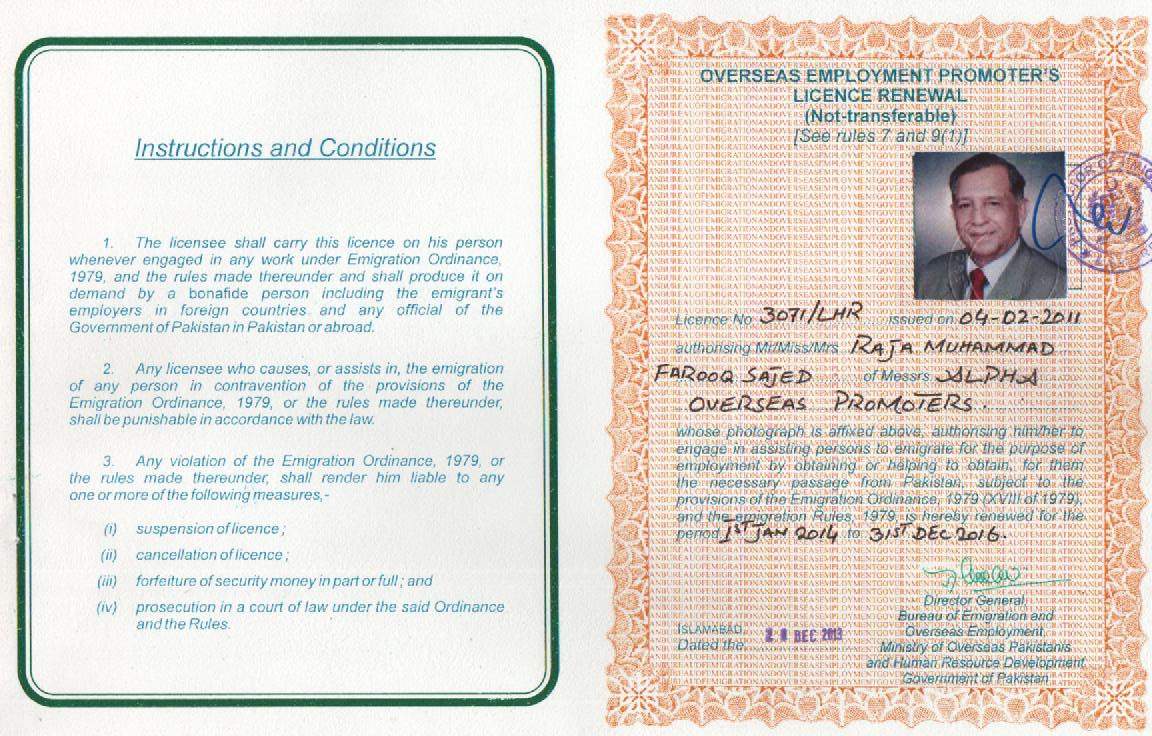 Instructions and Conditions
1. The licensee shall carry this licence on his person
whenever engaged in any work under Emigration Ordinance,
1979, and the rules made thereunder and shall produce it on
demand by a bonafide person including the emigrant's
employers in foreign countries and any official of the
Government of Pakistan in Pakistan or abroad.
2. Any licensee who causes, or assists in, the emigration
of any person in contravention of the provisions of the
Emigration Ordinance, 1979, or the rules made thereunder,
shall be punishable in accordance with the law.
3. Any violation of the Emigration Ordinance, 1979, or
the rules made thereunder, shall render him liable to any
one or more of the following measures,-
(i) suspension of licence ;
(ii) cancellation of licence ;
(iii) forfeiture of security money in part or full ; and
(iv) prosecution in a court of law under the said Ordinance
and the Rules.
OVERSEAS EMPLOYMENT PROMOTER'S
LICENCE RENEWAL
(Not-transferable)
[See rules 7 and 9(1)]
Licence No. 3071/LHR issued on 04-02-2011
authorising Mr/Miss/Mrs RAJA MUHAMMAD
FAROOQ SAJED of Messrs ALPHA
OVERSEAS PROMOTERS.
whose photograph is affixed above, authorising him/her to
engage in assisting persons to emigrate for the purpose of
employment by obtaining or helping to obtain, for them
the necessary passage from Pakistan, subject to the
provisions of the Emigration Ordinance, 1979 (XVIII of 1979),
and the emigration Rules, 1979, is hereby renewed for the
period 1ST JAN 2014 to 31ST DEC 2016.
Director General,
Bureau of Emigration and
Overseas Employment,
Ministry of Overseas Pakistanis
and Human Resource Development
Government of Pakistan
ISLAMABAD,
Dated the 28 DEC 2013